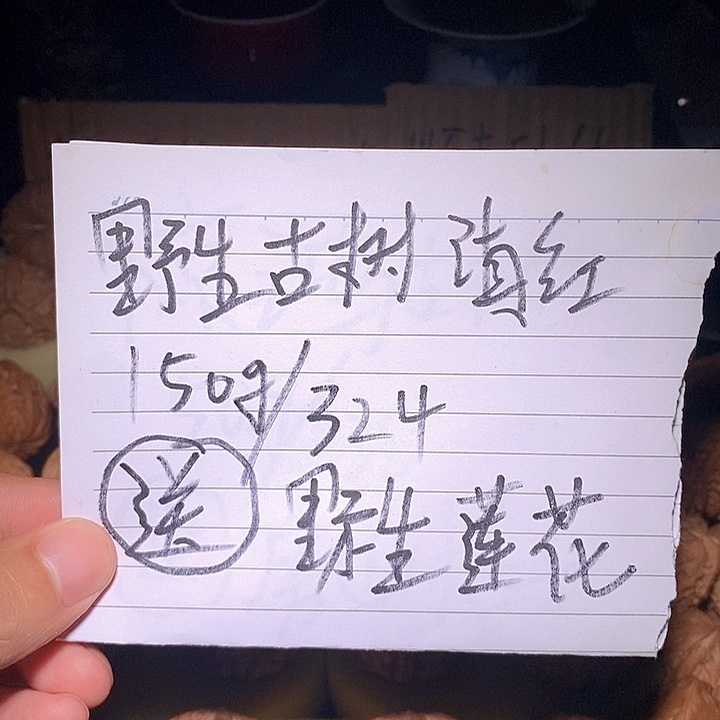 野生古树滇红
150g/324
送 野生莲花